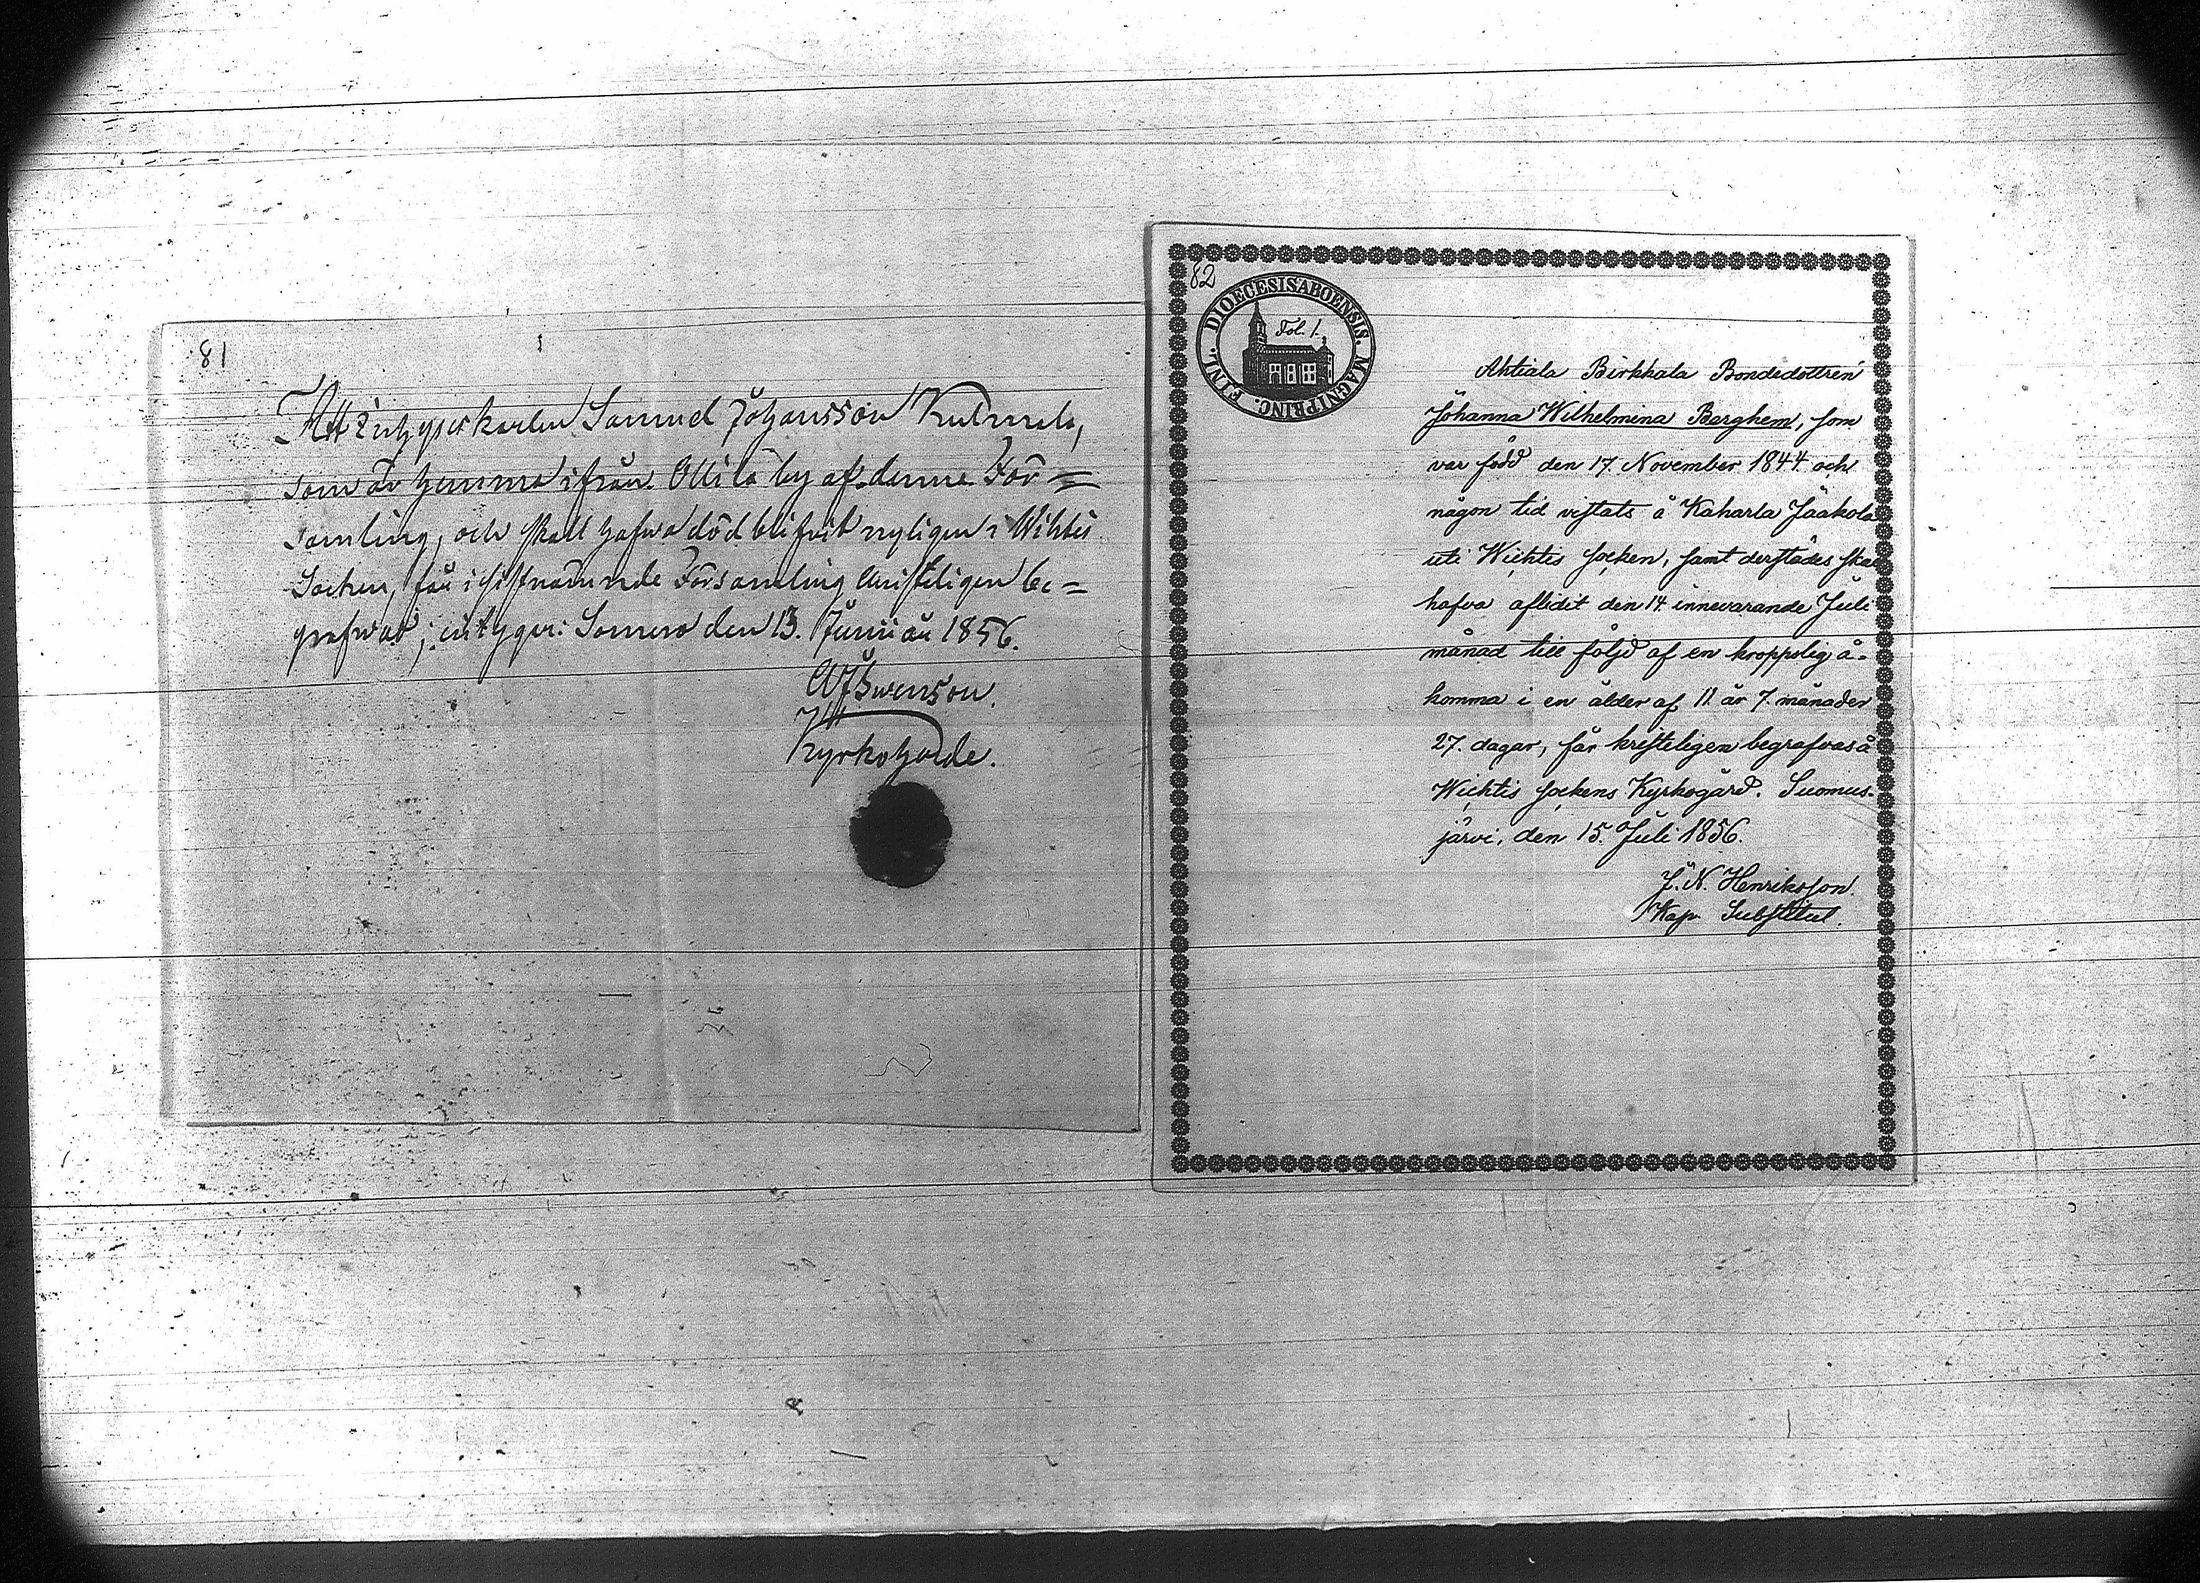 81
Att Inhyseskarlen Samuel Johansson Kulmala,
som är hemma ifrån Ollila by af denna För=
samling, och skall hafwa död blifvit nyligen i Wihtis
Socken, får i sistnämnde Församling christeligen be=
grafwas; intygar: Somero den 13. Junii år 1856.
Swenson.
Kyrkoherde.
82
DIOECESIS ABOENSIS. MAGNI PRINC. FINL.
Fol. 1.
Ahtiala Birkkala Bondedottren
Johanna Wilhelmina Berghem, som
var född den 17. November 1844 och
någon tid vistats å Kaharla Jaakola
uti Wichtis socken, samt derstädes skall
hafva aflidit den 14 innevarande Juli
månad till följd af en kroppslig å-
komma i en ålder af 11 år 7. månader
27. dagar, får kristeligen begrafvas å
Wichtis sockens Kyrkogård. Suomus-
järvi, den 15. Juli 1856.
J. N. Henriksson.
Kap. Substitut.